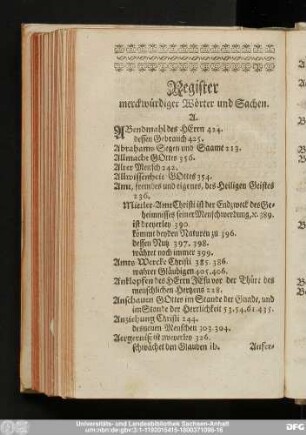 Register
merckwürdiger Wörter und Sachen.
A.
ABendmahl des HErrn 424.
dessen Gebrauch 425.
Abrahams Segen und Saame 213.
Allmacht GOttes 356.
Alter Mensch 242.
Allwissenheit GOttes 354.
Amt, fremdes und eigenes, des Heiligen Geistes
236.
Mittler-Amt Christi ist der Endzweck des Ge-
heimnisses seiner Menschwerdung, ꝛc. 389.
ist dreyerley 390.
kommt beyden Naturen zu 396.
dessen Nutz 397. 398.
währet noch immer 399.
Amts-Wercke Christi 385. 386.
wahrer Gläubigen 405. 406.
Anklopfen des HErrn JEsu vor der Thüre des
menschlichen Hertzens 228.
Anschauen GOttes im Stande der Gnade, und
im Stande der Herrlichkeit 53. 54. 61. 435.
Anziehung Christi 244.
des neuen Menschen 303. 304.
Aergerniß ist zweyerley 326.
schwächet den Glauben ib.
Aufer-
Universitäts- und Landesbibliothek Sachsen-Anhalt
urn:nbn:de:gbv:3:1-1192015415-180037109
DFG